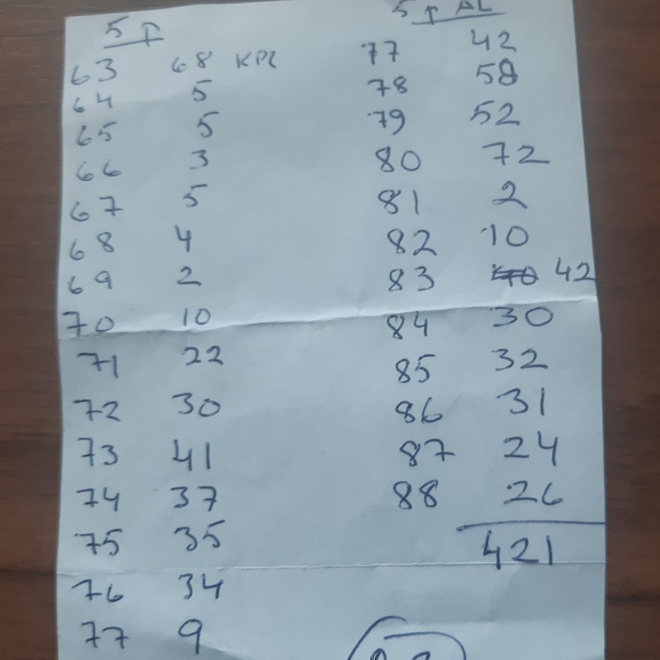 5 P
63 68 KPL
64 5
65 5
66 3
67 5
68 4
69 2
70 10
71 22
72 30
73 41
74 37
75 35
76 34
77 9
5 P AL
77 42
78 58
79 52
80 72
81 2
82 10
83 42
84 30
85 32
86 31
87 24
88 26
421